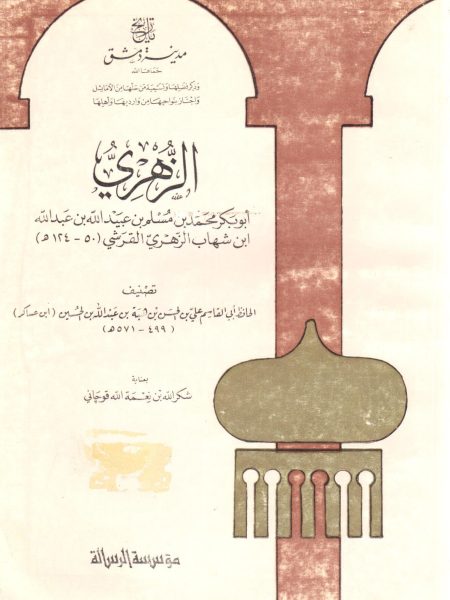 تاريخ
مدينة دمشق
حماها الله
وذكر فضلها وتسمية من حلها من الأماثل
واجتاز بنواحيها من وارديها وأهلها
الزُّهْرِيُّ
أبو بكر محمّد بن مُسْلم بن عبيد الله بن عبد الله
ابن شهاب الزّهريّ القرشي (٥٠ - ١٢٤ هـ)
تصنيف
الحافظ أبي القاسم علي بن الحسن بن هبة بن عبد الله بن الحسين (ابن عساكر)
(٤٩٩ - ٥٧١ هـ)
بعناية
شكر الله بن نعمة الله قوجاني
مؤسسة الرسالة